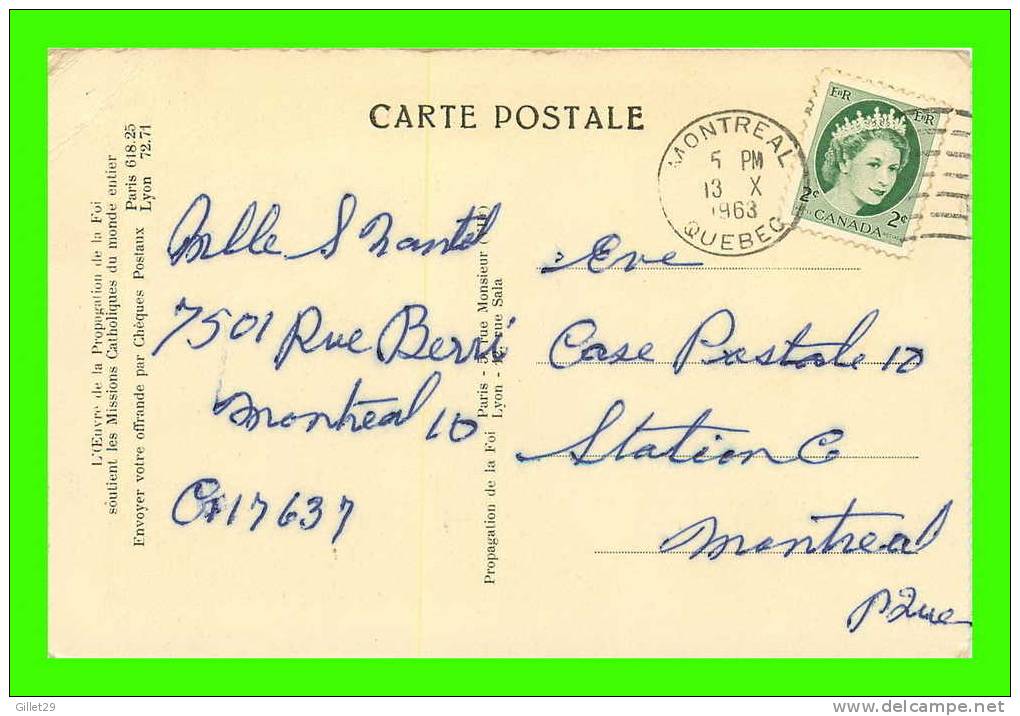 CARTE POSTALE
MONTREAL
5 PM
13 X
1963
QUEBEC
EIIR
EIIR
2¢ 2¢
CANADA
L'Œuvre de la Propagation de la Foi
soutient les Missions Catholiques du monde entier
Envoyer votre offrande par Chèques Postaux Paris 618.25
Lyon 72.71
Mlle S Nantel
7501 Rue Berri
Montréal 10
Cr17637
Propagation de la Foi
Paris - rue Monsieur
Lyon - rue Sala
Eve
Case Postale 10
Station C
Montreal
P Que
Gillet29